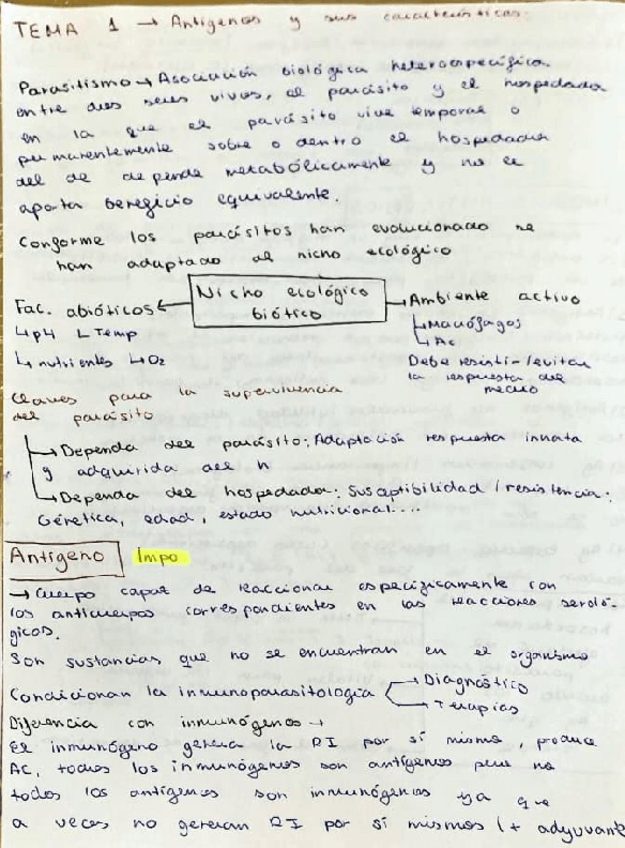 TEMA 1 → Antígenos y sus características.
Parasitismo → Asociación biológica heteroespecífica
entre dos seres vivos, el parásito y el hospedador
en la que el parásito vive temporal o
permanentemente sobre o dentro el hospedador
del de depende metabólicamente y no le
aporta beneficio equivalente.
Conforme los parásitos han evolucionado se
han adaptado al nicho ecológico
Nicho ecológico
biótico
Fac. abióticos
↳pH ↳Temp
↳nutrientes ↳O2
Ambiente activo
↳Macrófagos
↳Ac
Debe resistir/evitar
la respuesta del
medio
Claves para la supervivencia
del parásito
→ Dependa del parásito: Adaptación respuesta innata
y adquirida del h
→ Dependa del hospedador: Susceptibilidad/resistencia:
Genética, edad, estado nutricional...
Antígeno Impo
→ Cuerpo capaz de reaccionar específicamente con
los anticuerpos correspondientes en las reacciones sero­ló-
gicos.
Son sustancias que no se encuentran en el organismo
Condicionan la inmunoparasitología → Diagnóstico
→ Terapias
Diferencia con inmunógenos →
El inmunógeno genera la RI por sí mismo, produce
AC, todos los inmunógenos son antígenos pero no
todos los antígenos son inmunógenos ya que
a veces no generan RI por sí mismos (+ adyuvante